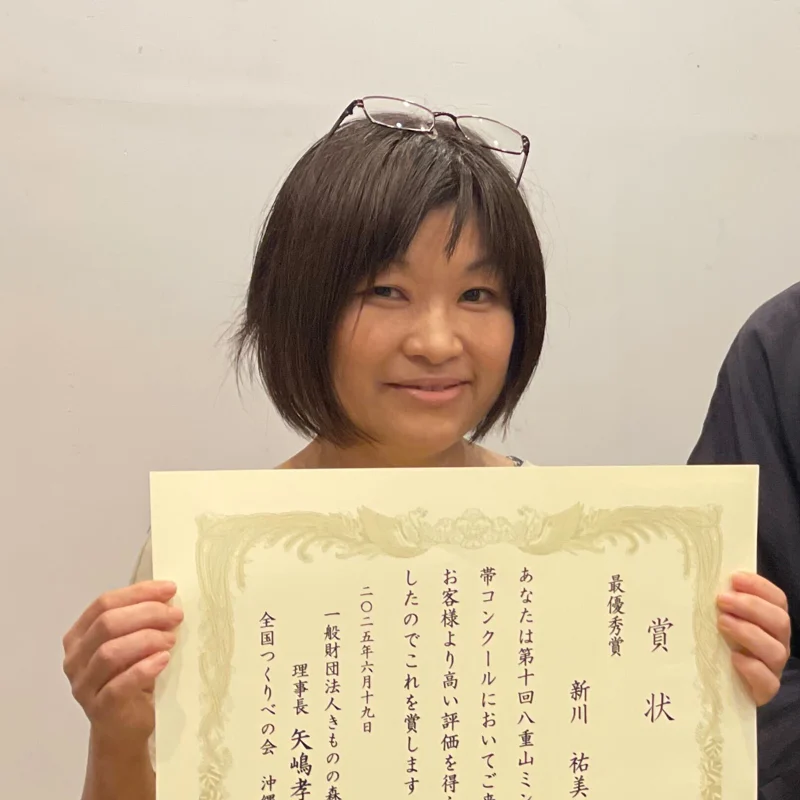 賞状
最優秀賞
新川 祐美
あなたは第十回八重山ミン
帯コンクールにおいてご来
お客様より高い評価を得
したのでこれを賞します
二〇二五年六月十九日
一般財団法人きものの森
理事長 矢嶋孝
全国つくりべの会 沖縄